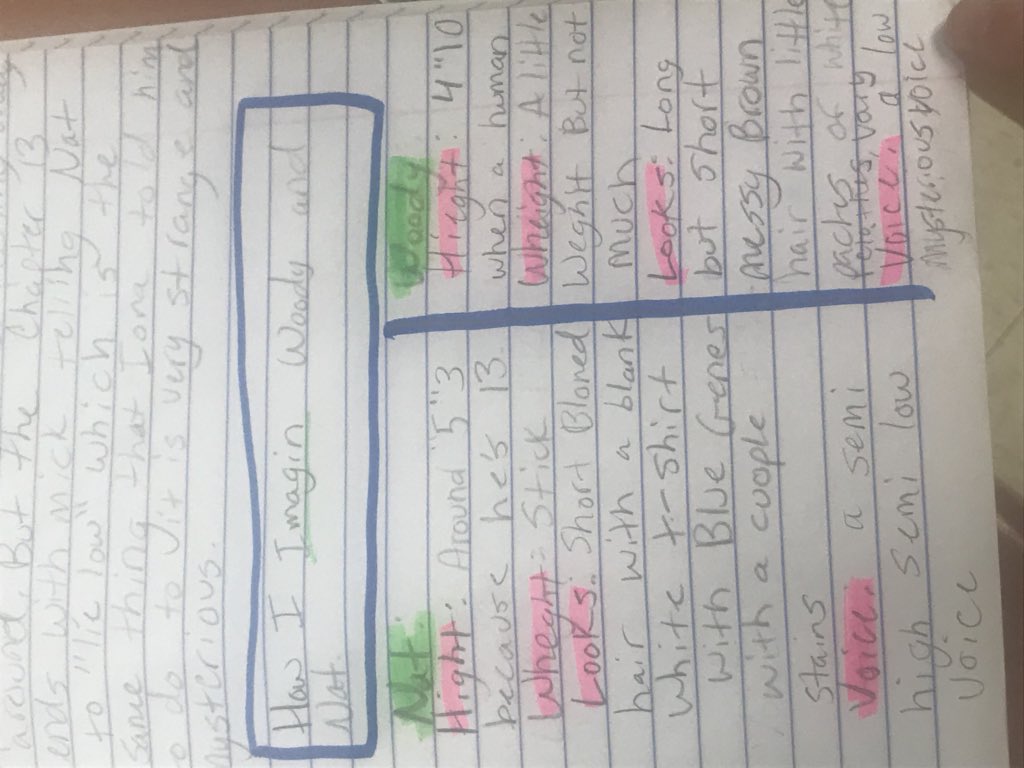 around. But the chapter 13
ends with Mick telling Nat
to "lie low" which is the
same thing that Iona told him
to do to Vit is very strange and
mysterious.
How I Imagin Woody and
Nat
Nat:
Hight: Around 5"3
because he's 13
Wheght: Stick
Looks: Short Blored
hair with a blank
white t-shirt
with Blue Grenes
with a coople
stains
Voice: a semi
high semi low
voice
Woody
Hieght: 4"10
when a human
Wheight: A little
Weght But not
much
Looks: Long
but short
messy Brown
hair with little
pactes of white
Voice: vary
a low
mysterious voice